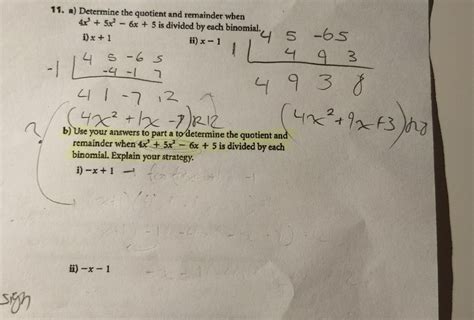 11. a) Determine the quotient and remainder when
4x³ + 5x² − 6x + 5 is divided by each binomial.
i) x + 1
ii) x − 1
-1 | 4 5 -6 5
-4 -1 7
4 1 -7 12
(4x² + 1x - 7) R12
1 | 4 5 -6 5
4 9 3
4 9 3 8
(4x² + 9x + 3) R8
?
b) Use your answers to part a to determine the quotient and
remainder when 4x³ + 5x² − 6x + 5 is divided by each
binomial. Explain your strategy.
i) −x + 1
ii) −x − 1
sign